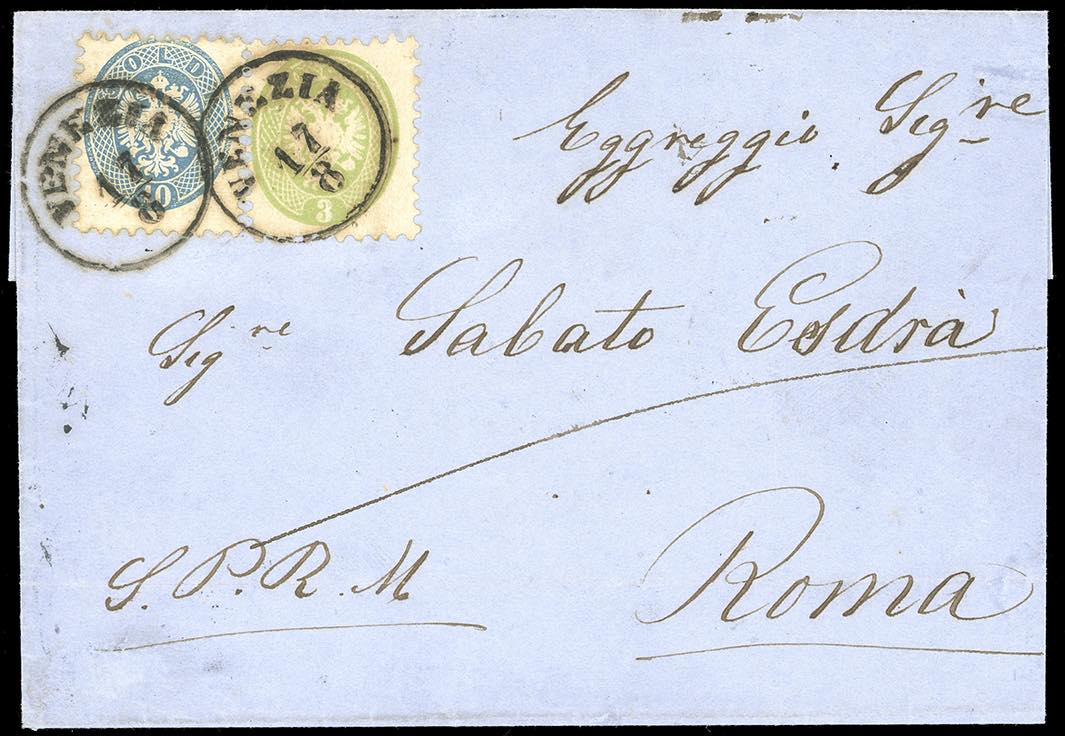 SOLDI
10
3
VENEZIA
17/8
VENEZIA
17/8
Eggreggio Sig.re
Sig.re Sabato Esdrà
S. P. R. M
Roma